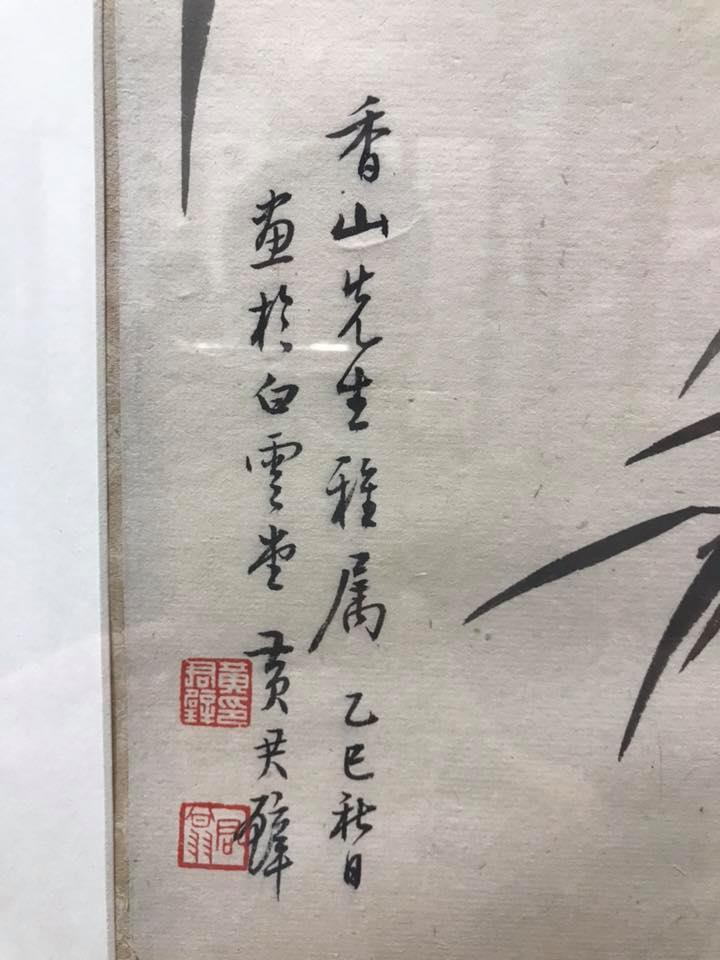 香山先生雅属 乙巳秋日
画於白雲堂 黄君璧
黄君璧印
君翁